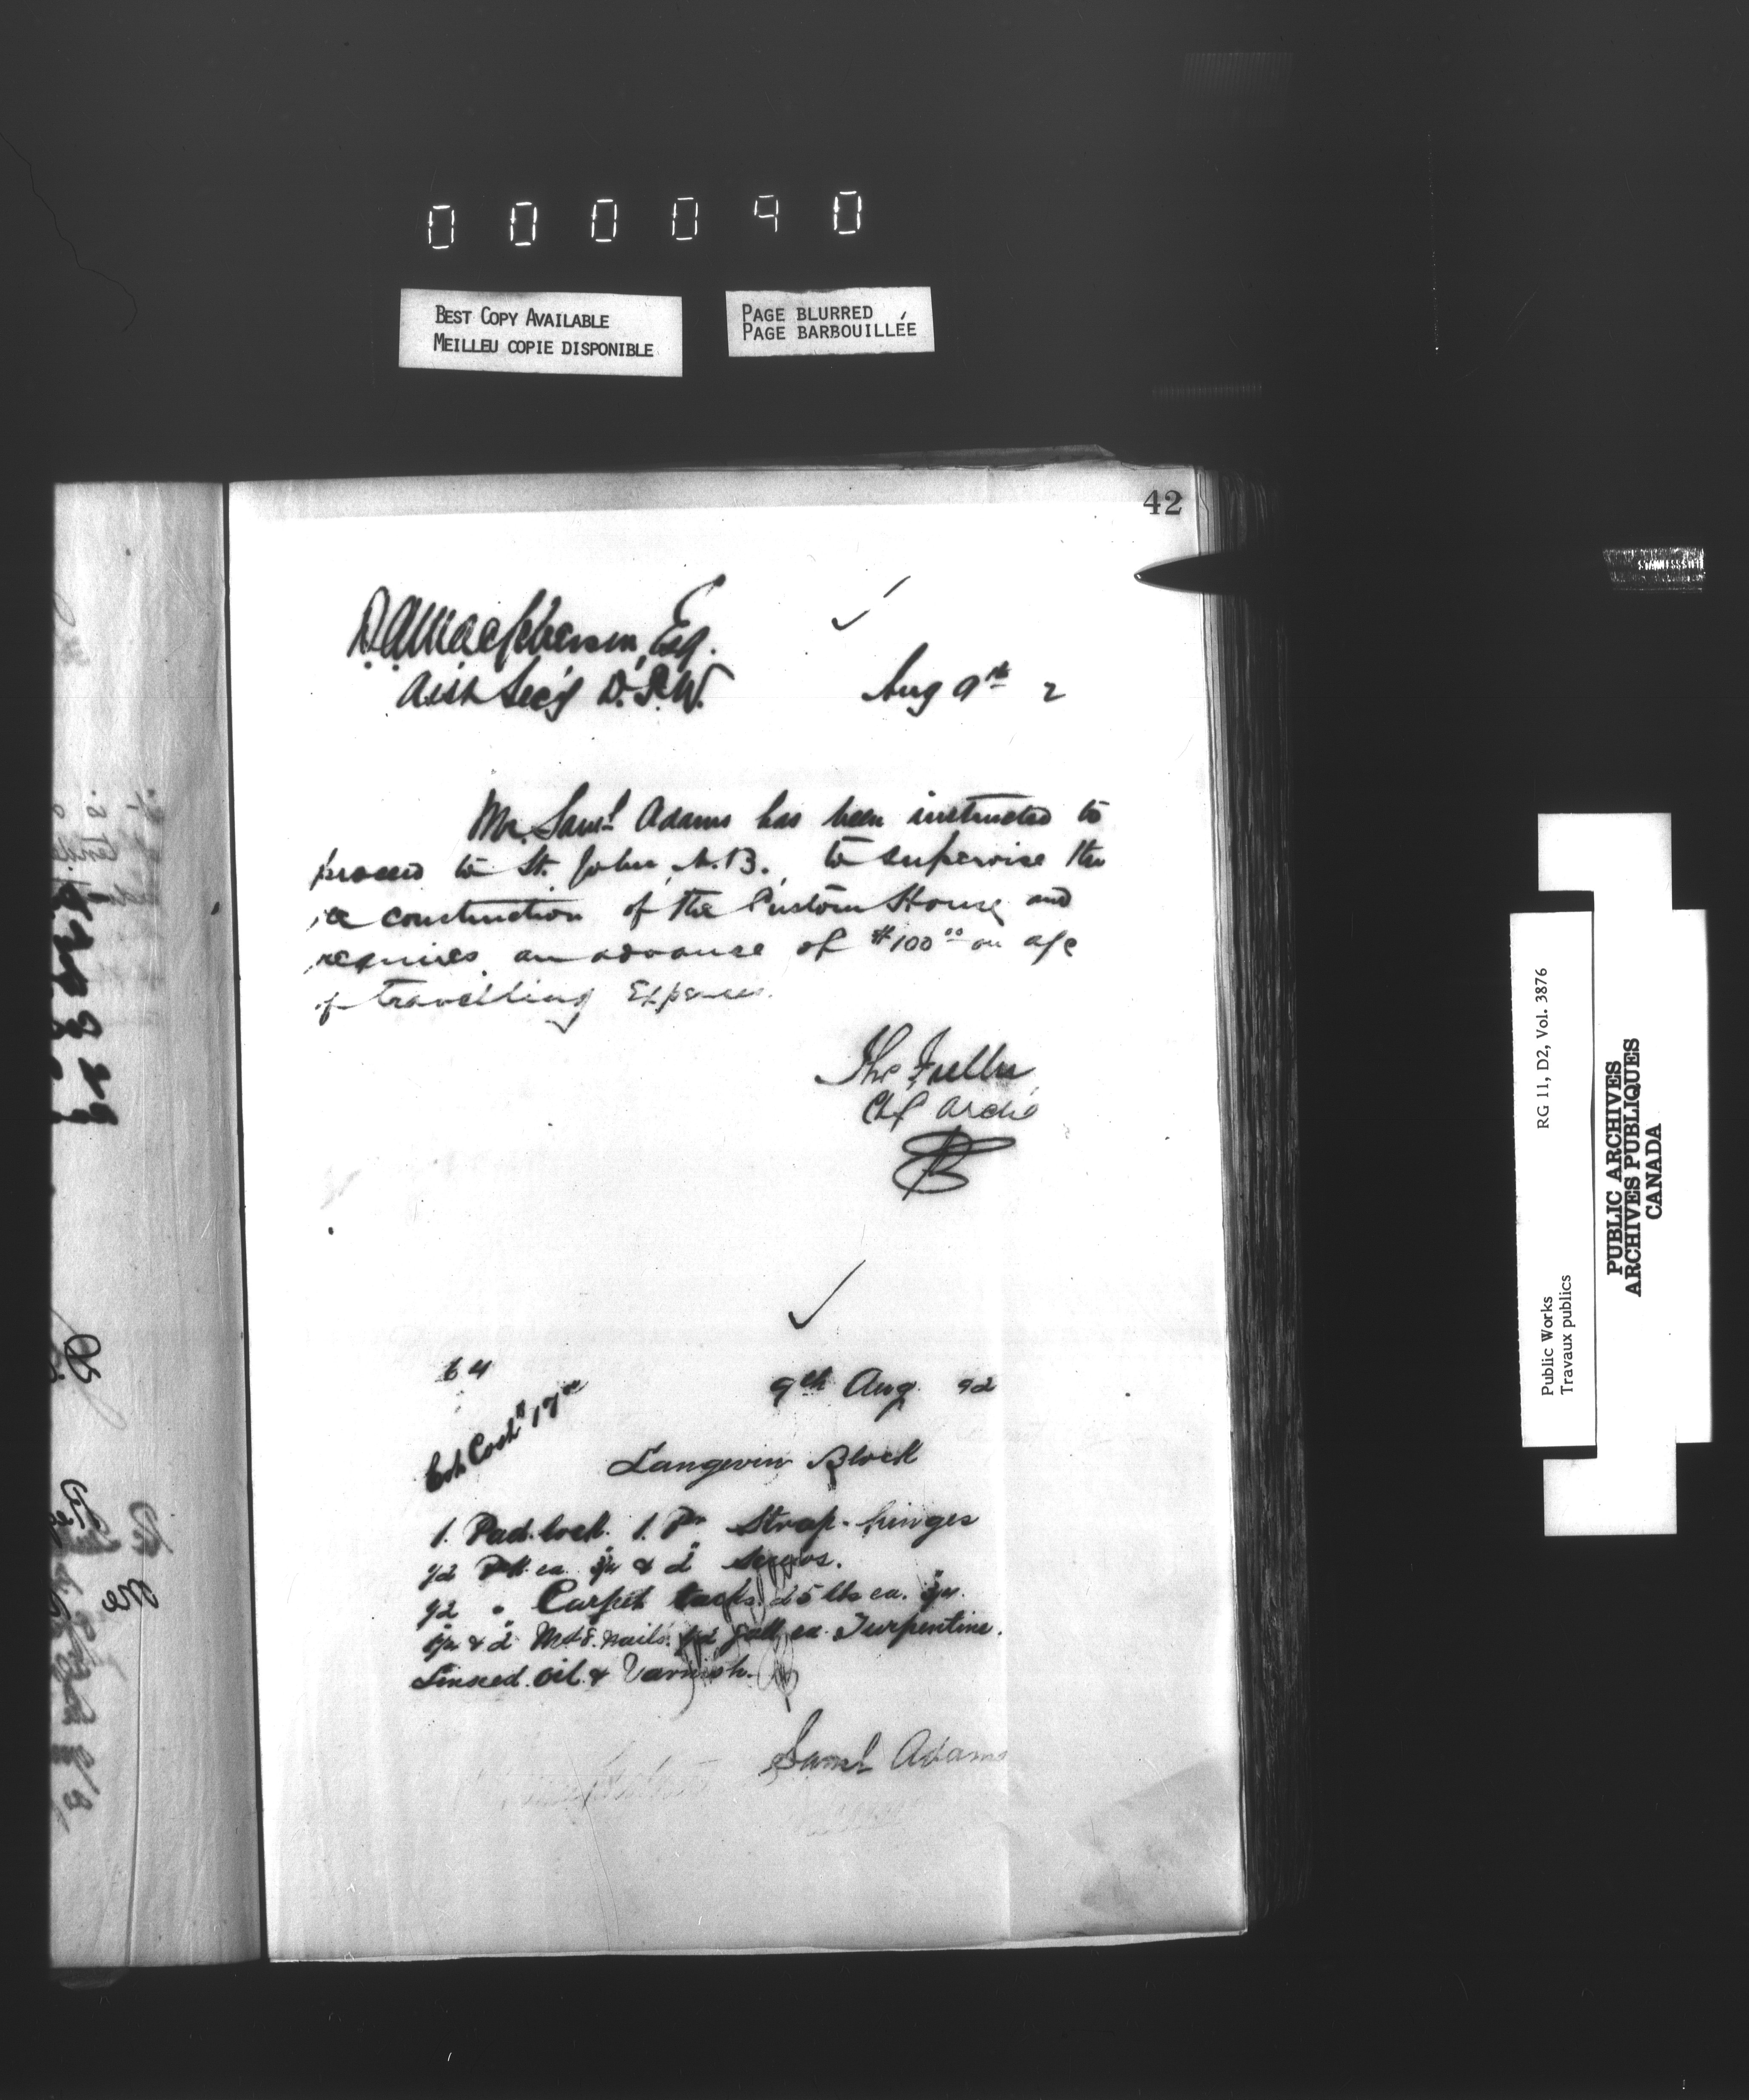 000090
BEST COPY AVAILABLE
MEILLEU COPIE DISPONIBLE
PAGE BLURRED
PAGE BARBOUILLÉE
42
D. A. Macpherson, Esq.
Asst Sec'y D.P.W.
Aug 9th 2
Mr. Saml Adams has been instructed to
proceed to St. John, N.B., to supervise the
re construction of the Custom House and
requires an advance of $100 00 on a/c
of travelling Expenses.
Tho Fuller
Chf Archt
64
9th Aug 92
Est. Cost $17
Langevin Block
1. Pad. lock. 1. Pr Strap. hinges
ea. & 2" Screws.
1/2 " Carpet tacks. 25 lbs ea.
& 2" nails. 1/2 gall ea. Turpentine.
Linseed. Oil. & Varnish.
Saml Adams
Public Works
Travaux publics
RG 11, D2, Vol. 3876
PUBLIC ARCHIVES
ARCHIVES PUBLIQUES
CANADA